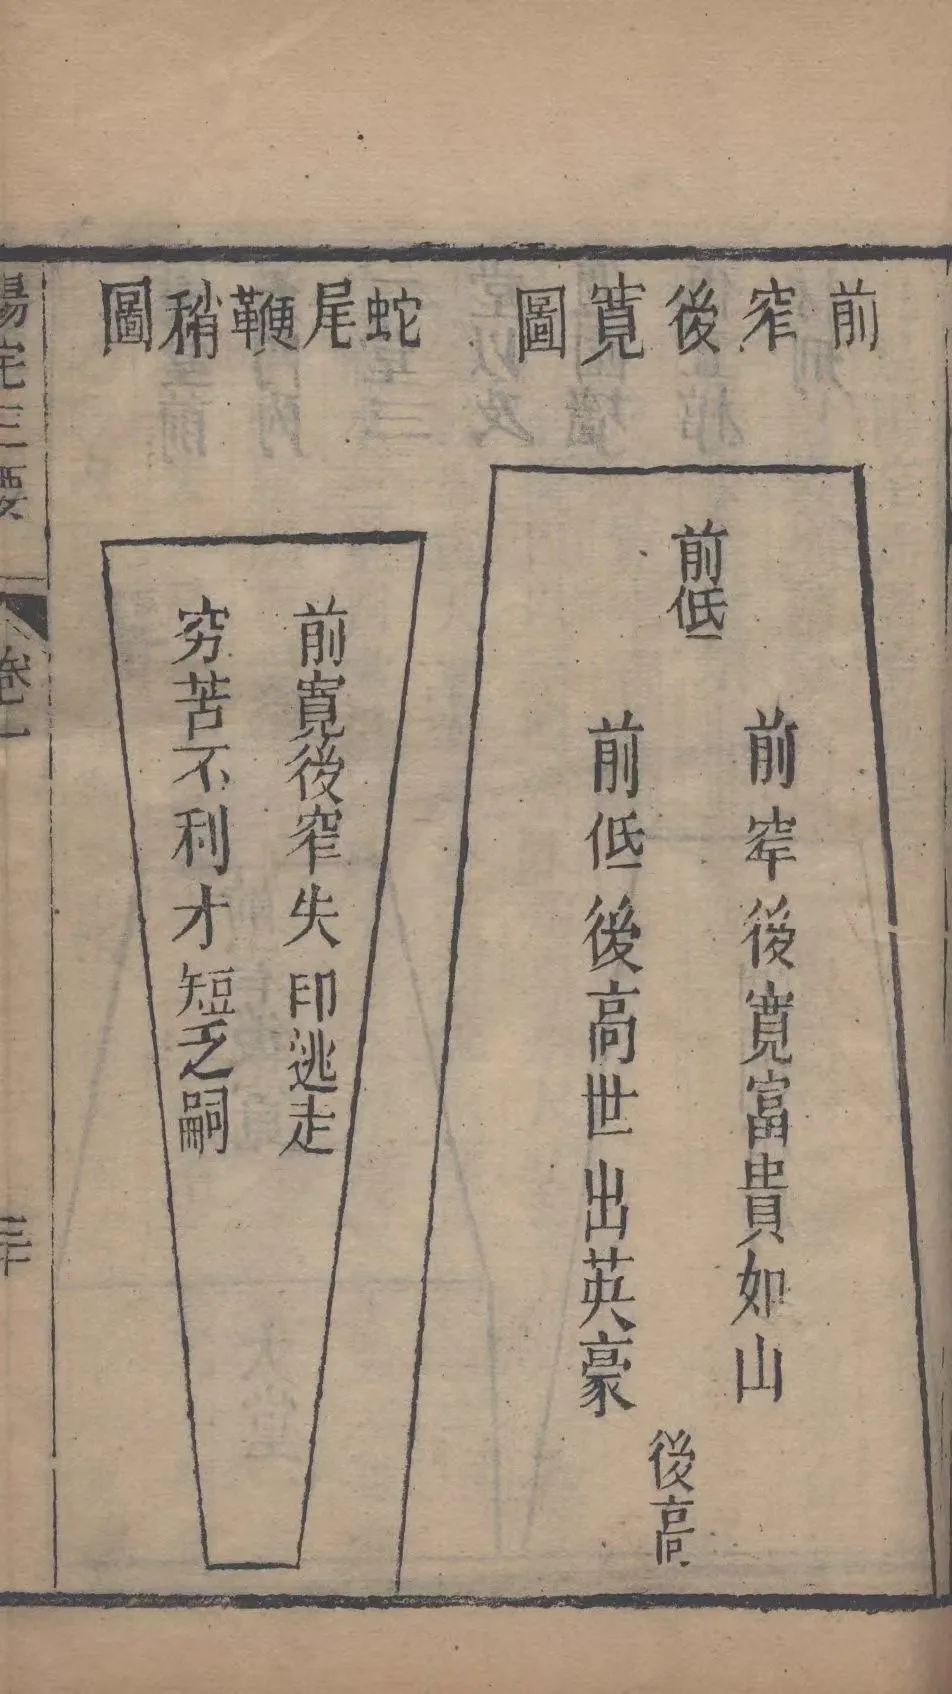 前窄後寬圖
前低
前窄後寬富貴如山
前低後高世出英豪
後高
蛇尾鞭稍圖
前寬後窄失印逃走
穷苦不利才短乏嗣
陽宅三要
卷一
三十